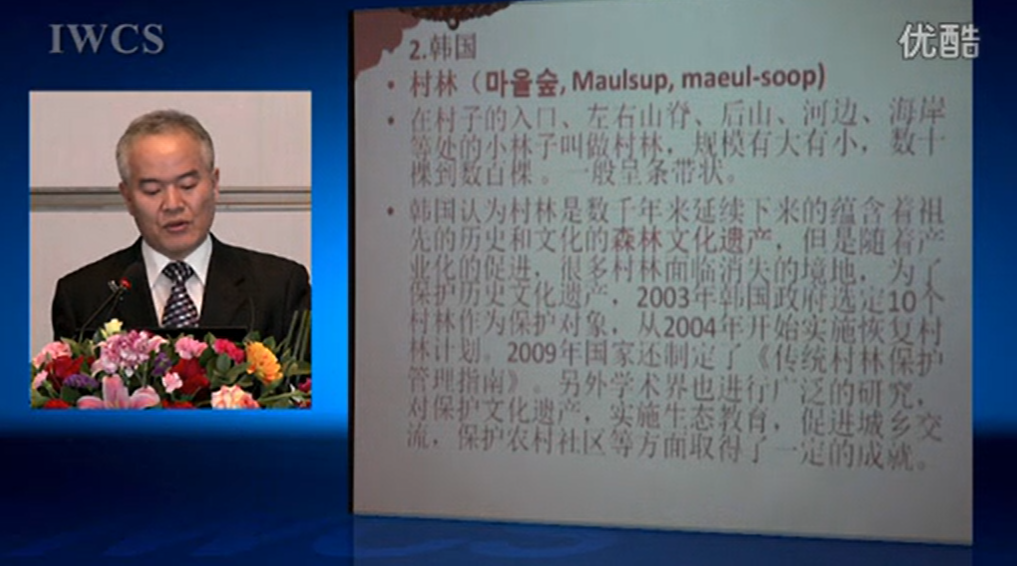 IWCS
优酷
2.韩国
• 村林（마을숲, Maulsup, maeul-soop)
• 在村子的入口、左右山脊、后山、河边、海岸
等处的小林子叫做村林，规模有大有小，数十
棵到数百棵。一般呈条带状。
• 韩国认为村林是数千年来延续下来的蕴含着祖
先的历史和文化的森林文化遗产，但是随着产
业化的促进，很多村林面临消失的境地，为了
保护历史文化遗产，2003年韩国政府选定10个
村林作为保护对象，从2004年开始实施恢复村
林计划。2009年国家还制定了《传统村林保护
管理指南》。另外学术界也进行广泛的研究，
对保护文化遗产，实施生态教育，促进城乡交
流，保护农村社区等方面取得了一定的成就。